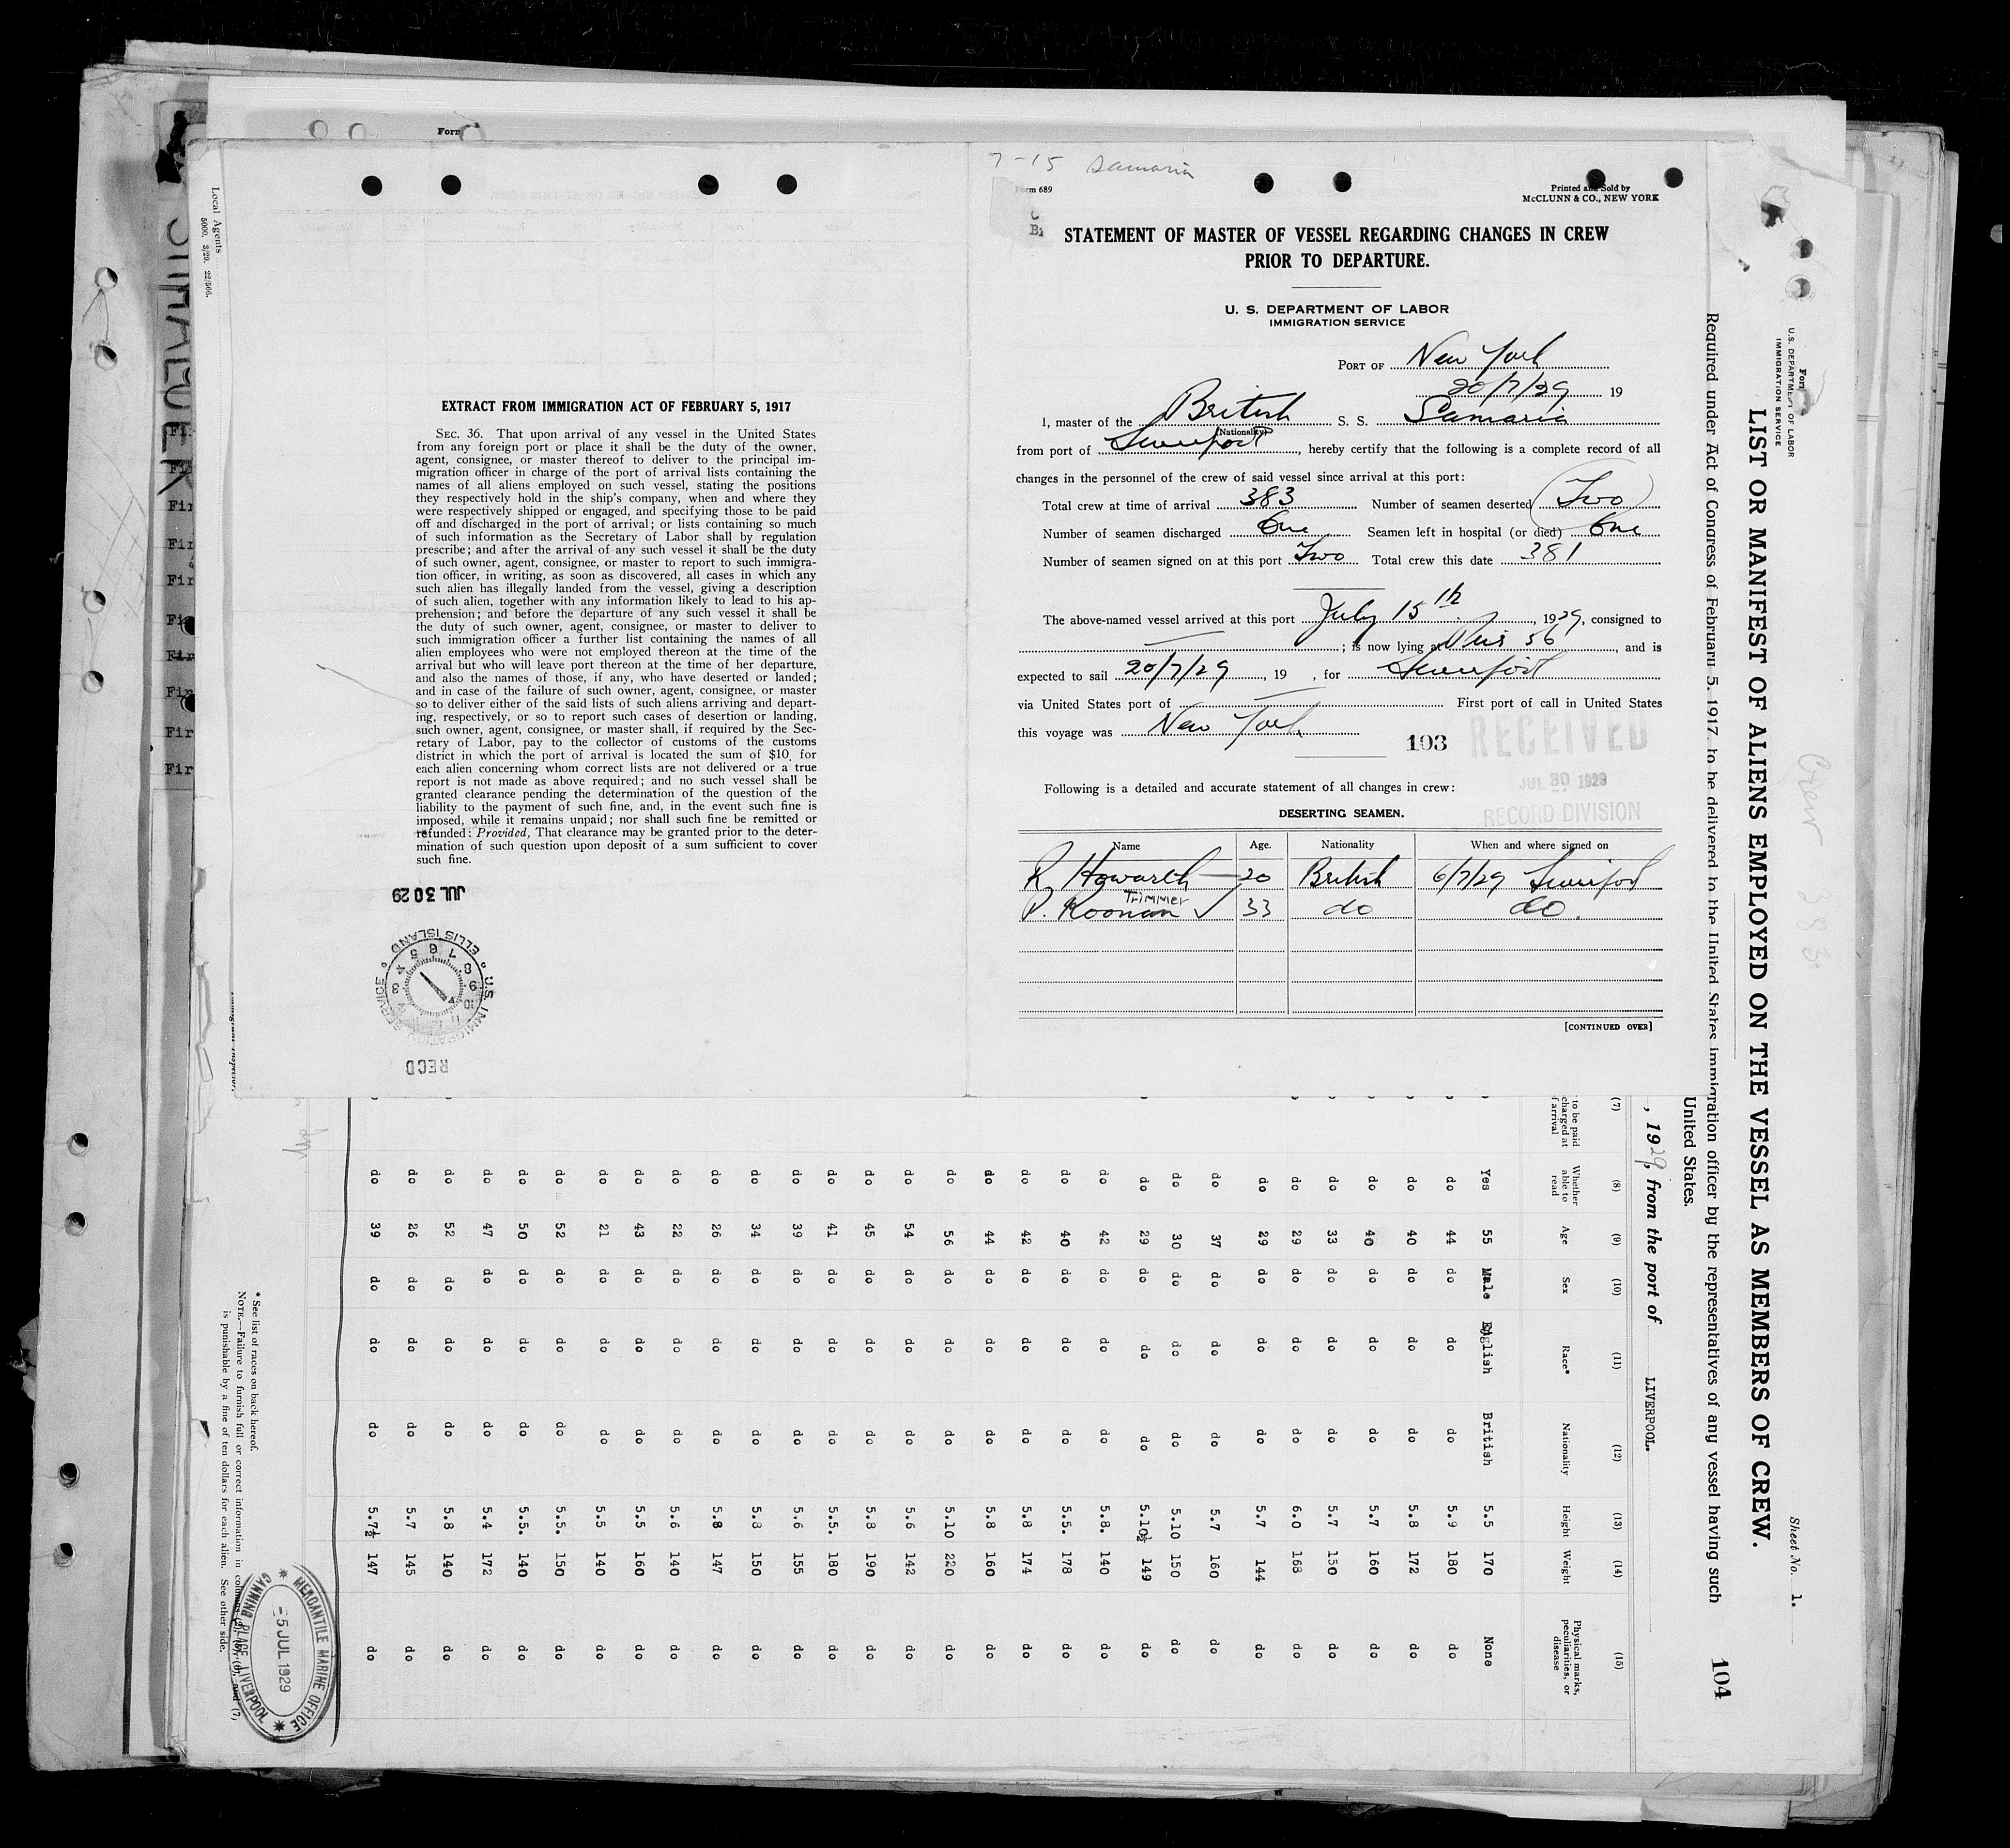 7-15 Samaria
Form 689
Printed and Sold by
McCLUNN & CO., NEW YORK
STATEMENT OF MASTER OF VESSEL REGARDING CHANGES IN CREW
PRIOR TO DEPARTURE.
U. S. DEPARTMENT OF LABOR
IMMIGRATION SERVICE
PORT OF New York
20/7/29 19
I, master of the British S. S. Samaria
(Nationality)
from port of Liverpool, hereby certify that the following is a complete record of all
changes in the personnel of the crew of said vessel since arrival at this port:
Total crew at time of arrival 383 Number of seamen deserted Two
Number of seamen discharged One Seamen left in hospital (or died) One
Number of seamen signed on at this port Two Total crew this date 381
The above-named vessel arrived at this port July 15th, 1929, consigned to
; is now lying at Pier 56, and is
expected to sail 20/7/29, 19 , for Liverpool
via United States port of First port of call in United States
this voyage was New York.
103
RECEIVED
JUL 30 1929
RECORD DIVISION
Following is a detailed and accurate statement of all changes in crew:
DESERTING SEAMEN.
Name Age. Nationality When and where signed on
R. Howarth 20 British 6/7/29 Liverpool
Trimmer
P. Koonan ✓ 33 do do.
[CONTINUED OVER]
Local Agents
5000, 3/29, 22/566.
EXTRACT FROM IMMIGRATION ACT OF FEBRUARY 5, 1917
SEC. 36. That upon arrival of any vessel in the United States
from any foreign port or place it shall be the duty of the owner,
agent, consignee, or master thereof to deliver to the principal im-
migration officer in charge of the port of arrival lists containing the
names of all aliens employed on such vessel, stating the positions
they respectively hold in the ship's company, when and where they
were respectively shipped or engaged, and specifying those to be paid
off and discharged in the port of arrival; or lists containing so much
of such information as the Secretary of Labor shall by regulation
prescribe; and after the arrival of any such vessel it shall be the duty
of such owner, agent, consignee, or master to report to such immigra-
tion officer, in writing, as soon as discovered, all cases in which any
such alien has illegally landed from the vessel, giving a description
of such alien, together with any information likely to lead to his ap-
prehension; and before the departure of any such vessel it shall be
the duty of such owner, agent, consignee, or master to deliver to
such immigration officer a further list containing the names of all
alien employees who were not employed thereon at the time of the
arrival but who will leave port thereon at the time of her departure,
and also the names of those, if any, who have deserted or landed;
and in case of the failure of such owner, agent, consignee, or master
so to deliver either of the said lists of such aliens arriving and depart-
ing, respectively, or so to report such cases of desertion or landing,
such owner, agent, consignee, or master shall, if required by the Sec-
retary of Labor, pay to the collector of customs of the customs
district in which the port of arrival is located the sum of $10 for
each alien concerning whom correct lists are not delivered or a true
report is not made as above required; and no such vessel shall be
granted clearance pending the determination of the question of the
liability to the payment of such fine, and, in the event such fine is
imposed, while it remains unpaid; nor shall such fine be remitted or
refunded: Provided, That clearance may be granted prior to the deter-
mination of such question upon deposit of a sum sufficient to cover
such fine.
JUL 30 29
U.S. IMMIGRATION SERVICE
ELLIS ISLAND
RECD
Crew 383
Sheet No. 1.
U.S. DEPARTMENT OF LABOR
IMMIGRATION SERVICE
LIST OR MANIFEST OF ALIENS EMPLOYED ON THE VESSEL AS MEMBERS OF CREW.
104
Required under Act of Congress of February 5, 1917, to be delivered to the United States immigration officer by the representatives of any vessel having such
United States.
, 1929, from the port of LIVERPOOL.
(7) (8) (9) (10) (11) (12) (13) (14) (15)
to be paid
charged at
arrival
Whether able to read Age Sex Race* Nationality Height Weight Physical marks, peculiarities, or disease
Yes 55 Male English British 5.5 170 None
do 44 do do do 5.9 180 do
do 40 do do do 5.8 172 do
do 40 do do do 5.7 160 do
do 33 do do do 5.7 150 do
do 29 do do do 6.0 168 do
do 29 do do do 5.7 144 do
do 37 do do do 5.7 160 do
do 30 do do do 5.10 150 do
do 29 do do do 5.10½ 149 do
do 42 do do do 5.8. 140 do
do 40 do do do 5.5. 178 do
do 42 do do do 5.8 174 do
do 44 do do do 5.8 160 do
do 56 do do do 5.10 220 do
do 54 do do do 5.6 142 do
do 45 do do do 5.8 190 do
do 41 do do do 5.5. 180 do
do 39 do do do 5.6 155 do
do 34 do do do 5.8 150 do
do 26 do do do 5.8 147 do
do 22 do do do 5.6 140 do
do 43 do do do 5.5 160 do
do 21 do do do 5.5 140 do
do 52 do do do 5.5. 150 do
do 50 do do do 5.5. 140 do
do 47 do do do 5.4 172 do
do 52 do do do 5.8 140 do
do 26 do do do 5.7 145 do
do 39 do do do 5.7½ 147 do
* See list of races on back hereof.
NOTE.—Failure to furnish full or correct information in columns (2), (5), (6), and (7)
is punishable by a fine of ten dollars for each alien. See other side.
MERCANTILE MARINE OFFICE
-5 JUL 1929
CANNING PLACE, LIVERPOOL